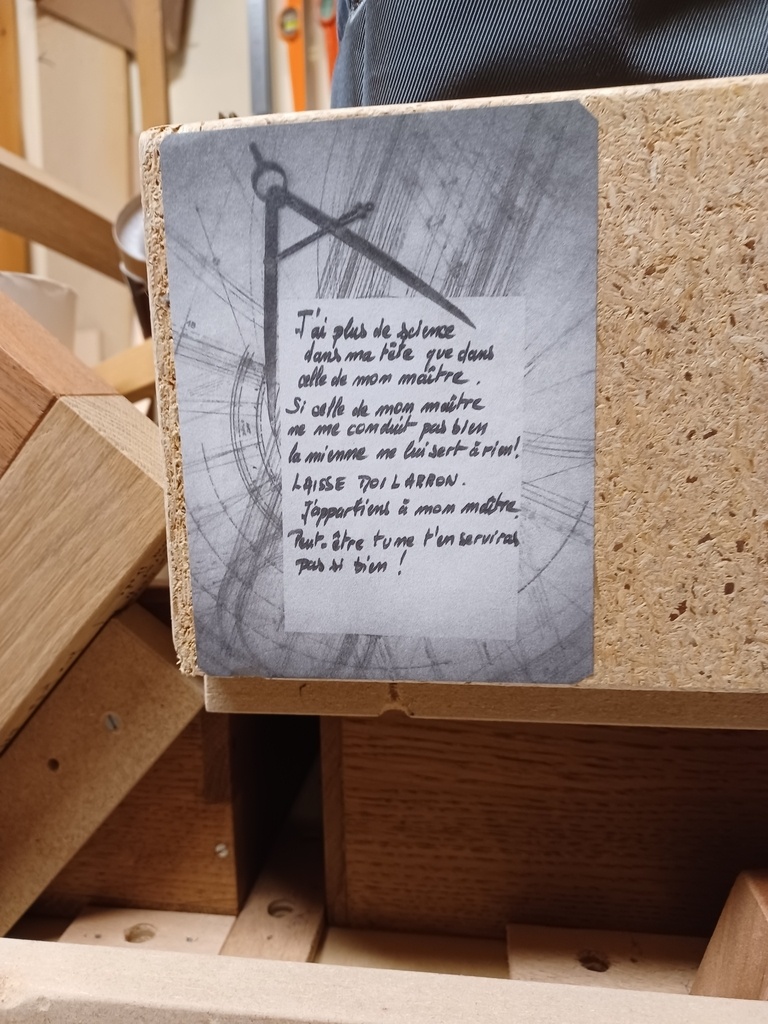 J'ai plus de science
dans ma tête que dans
celle de mon maître.
Si celle de mon maître
ne me conduit pas bien
la mienne ne lui sert à rien!
LAISSE MOI LARRON.
J'appartiens à mon maître
Peut-être tu ne t'en serviras
pas si bien!